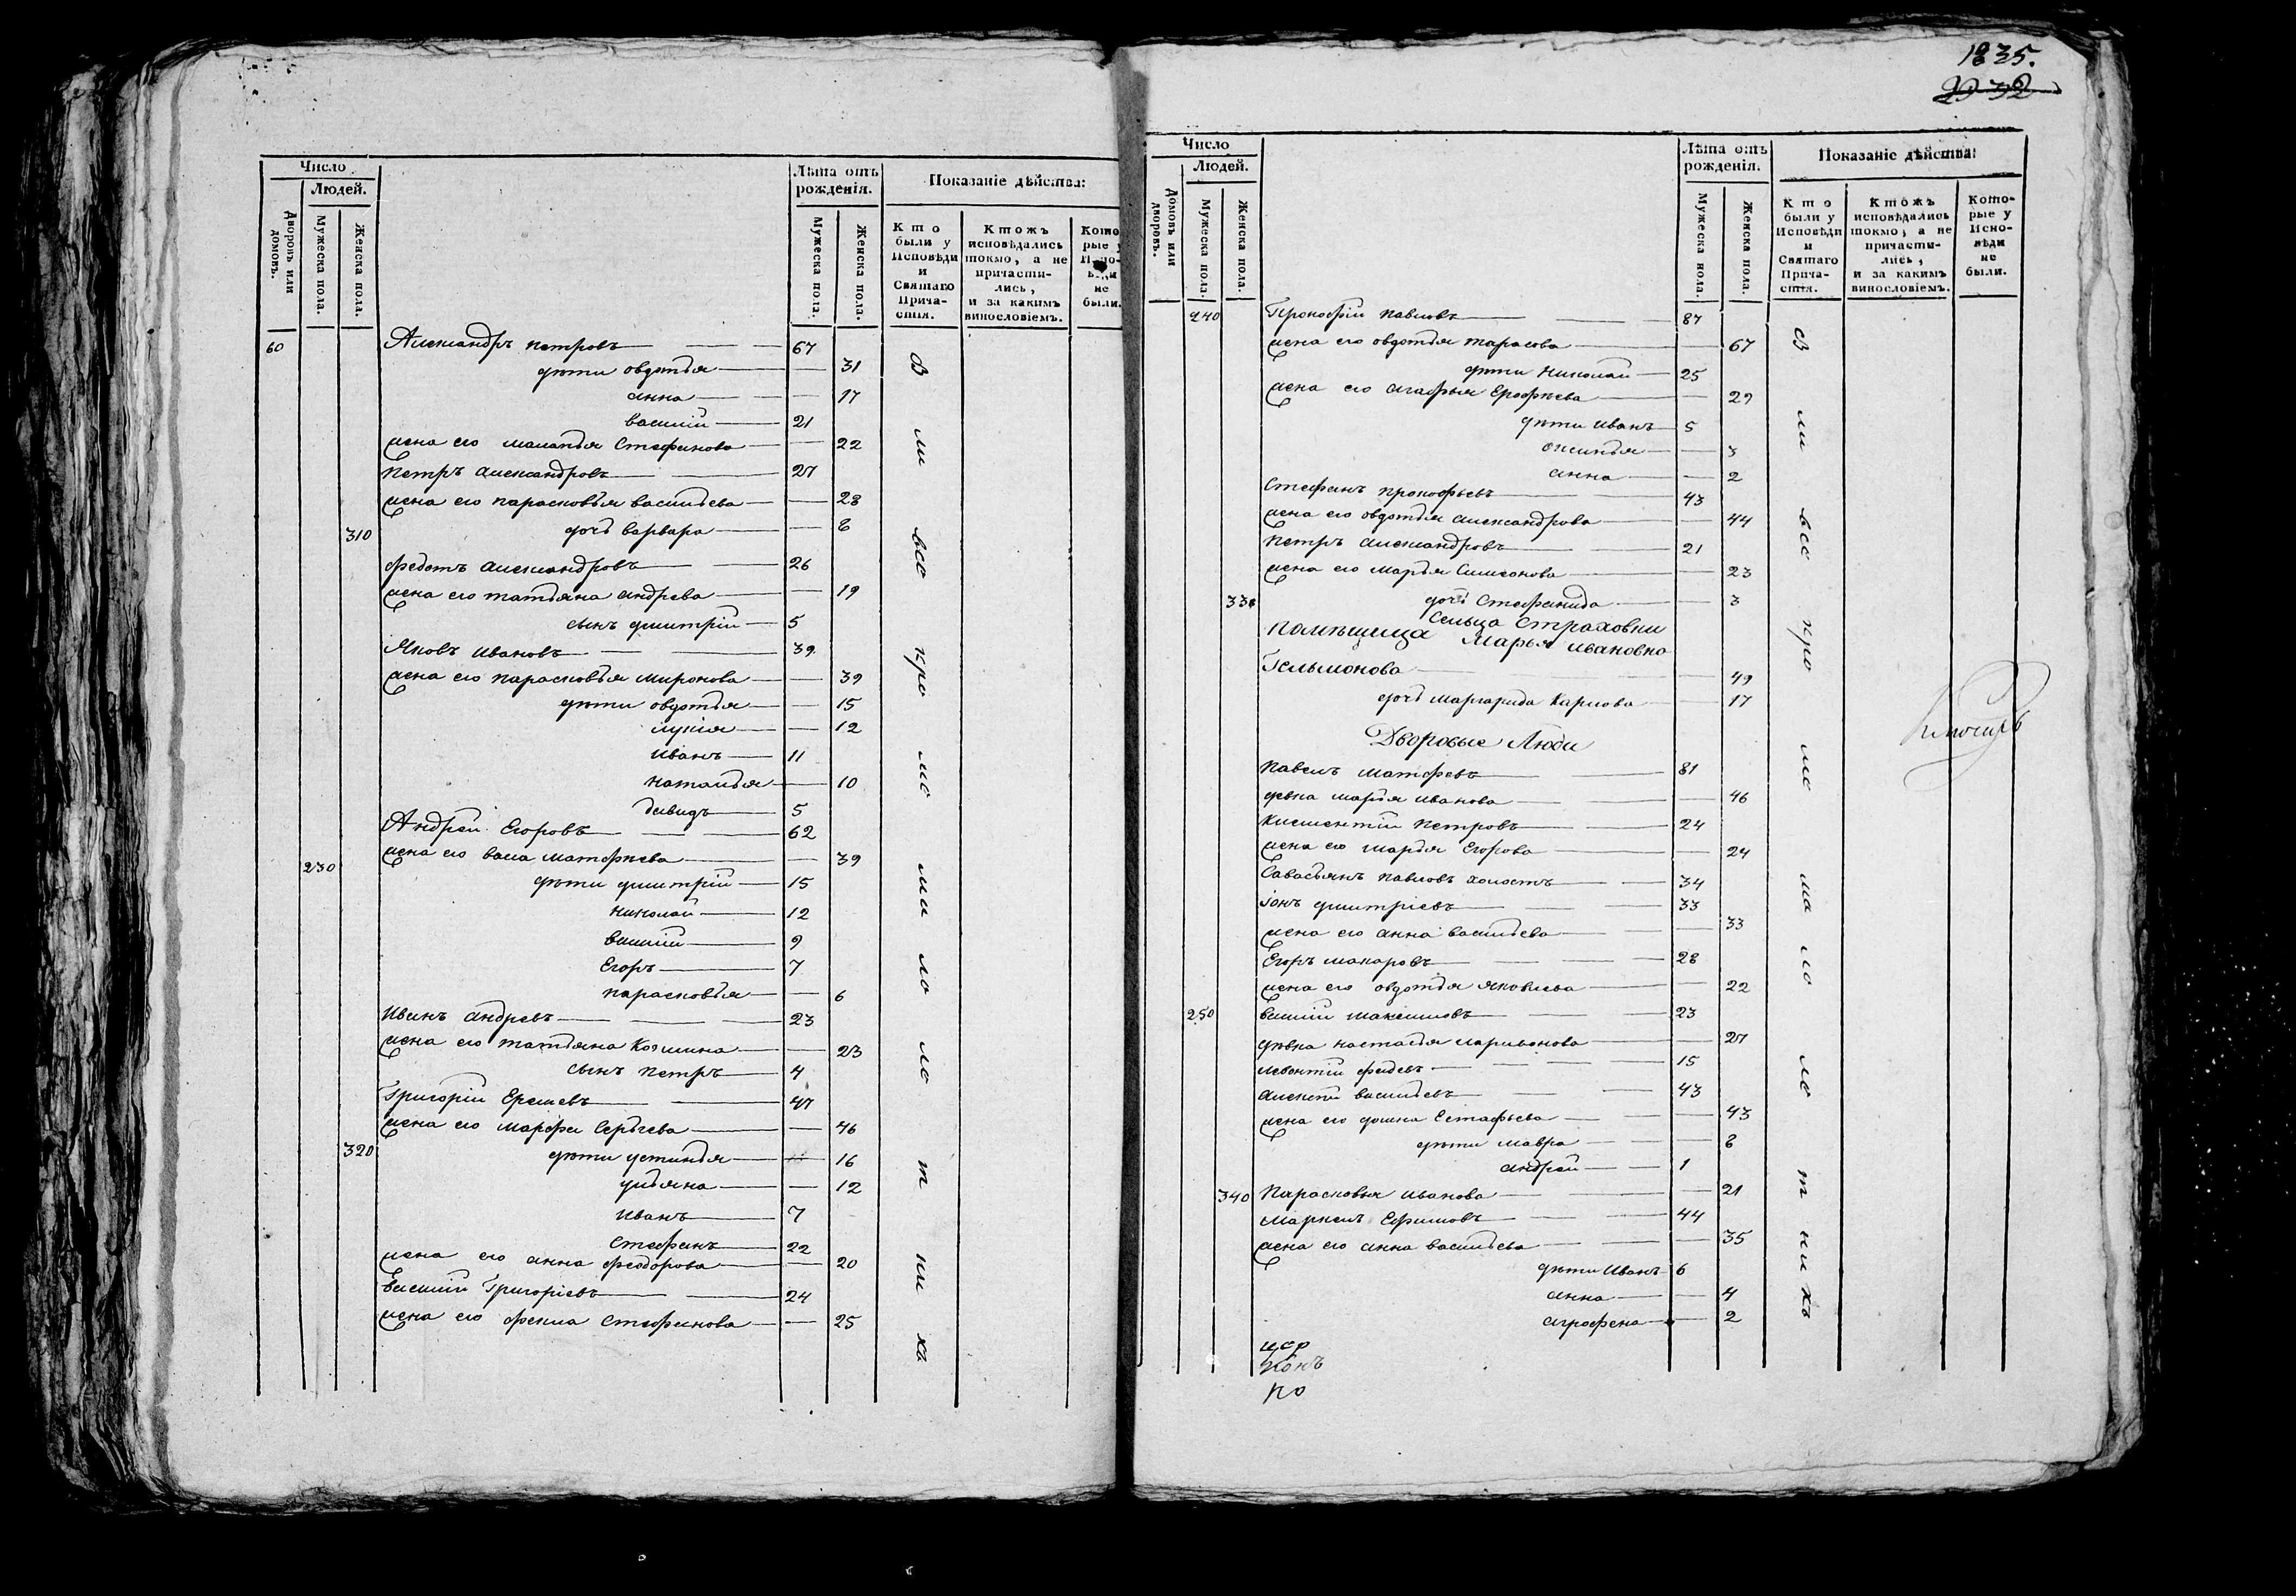 1835.
Число
Людей.
Дворовъ или домовъ.
Мужеска пола.
Женска пола.
Лѣта отъ рожденія.
Мужеска пола.
Женска пола.
Показаніе дѣйства:
Кто были у Исповѣди и Святаго Прича-стія.
Ктожъ исповѣдались токмо, а не причасти-лись, и за какимъ винословіемъ.
Кото рые у Испо-вѣди не были.
60 Александръ петровъ 67
дѣти овдотья 31
анна 17
василій 21
жена его маланья Стефанова 22
Петръ александровъ 27
жена его парасковья васильева 28
310 дочь варвара 8
федотъ александровъ 26
жена его татьяна андрева 19
сынъ дмитрій 5
Яковъ ивановъ 39
жена его парасковья миронова 39
дѣти овдотья 15
лукія 12
иванъ 11
наталья 10
давидъ 5
Андрей Егоровъ 62
230 жена его васа матфѣева 39
дѣти дмитрій 15
николай 12
василій 9
Егоръ 7
парасковья 6
Иванъ андревъ 23
жена его татьяна Козмина 23
сынъ петръ 4
Григорій Еремевъ 47
жена его марфа Сергѣева 46
320 дѣти устинья 16
ульяна 12
иванъ 7
Стефанъ 22
жена его анна феодорова 20
Василій Григорісвъ 24
жена его фекла Стефанова 25
св ли все кро ме ми ло ле т ни хъ
Число
Людей.
Домовъ или дворовъ.
Мужеска пола.
Женска пола.
Лѣта отъ рожденія.
Мужеска пола.
Женска пола.
Показаніе дѣйства:
Кто были у Исповѣди и Святаго Прича-стія.
Ктожъ исповѣдались токмо, а не причасти-лись, и за какимъ винословіемъ.
Кото-рые у Испо-вѣди не были.
240 Прокофій павловъ 87
жена его овдотья тарасова 67
дѣти николай 25
жена его агафья Ерофѣева 29
дѣти иванъ 5
3
анна 2
Стефанъ прокофьевъ 43
жена его овдотья александрова 44
Петръ александровъ 21
жена его марья Симеонова 23
330 дочь Стефанида 3
Сельца Страховки
помѣщица Марья ивановна
Гельмонова 49
дочь маргарида Карлова 17
Дворовые Люди
Павелъ матфевъ 81
девка марья иванова 46
Климентій петровъ 24
жена его марья Егорова 24
Савастьянъ павловъ холостъ 34
Іонъ дмитріевъ 33
жена его анна васильева 33
Егоръ макаровъ 28
жена его овдотья яковлева 22
250 василій максимовъ 23
дѣвка настасья ларивонова 27
левонтій фадевъ 15
алексей васильевъ 43
жена его домна Естафьева 43
дѣти мавра 8
андрей 1
340 Парасковья иванова 21
маркелъ Ефимовъ 44
жена его анна васильева 35
дѣти иванъ 6
анна 4
аграфена 2
св ли все кро ме ма ло ле т ни хъ